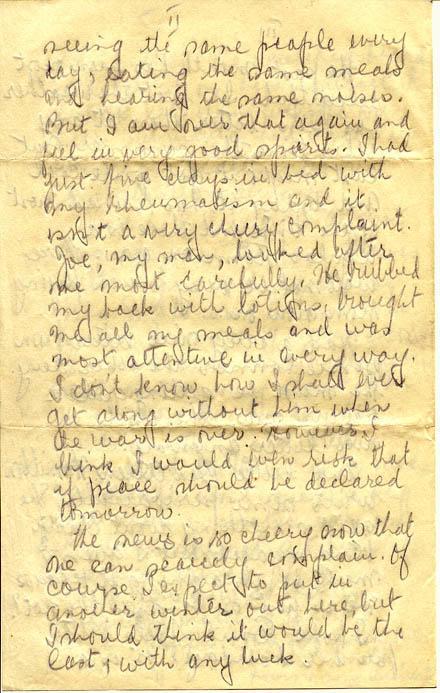 II
seeing the same people every
day, eating the same meals
and hearing the same noises.
But I am over that again and
feel in very good spirits. I had
just five days in bed with
my rheumatism and it
isn't a very cheery complaint.
Joe, my man, looked after
me most carefully. He rubbed
my back with lotions, brought
me all my meals and was
most attentive in every way.
I don't know how I shall ever
get along without him when
the war is over. However I
think I would even risk that
if peace should be declared
tomorrow.
The news is so cheery now that
one can scarcely complain. Of
course I expect to put in
another winter out here, but
I should think it would be the
last, with any luck.